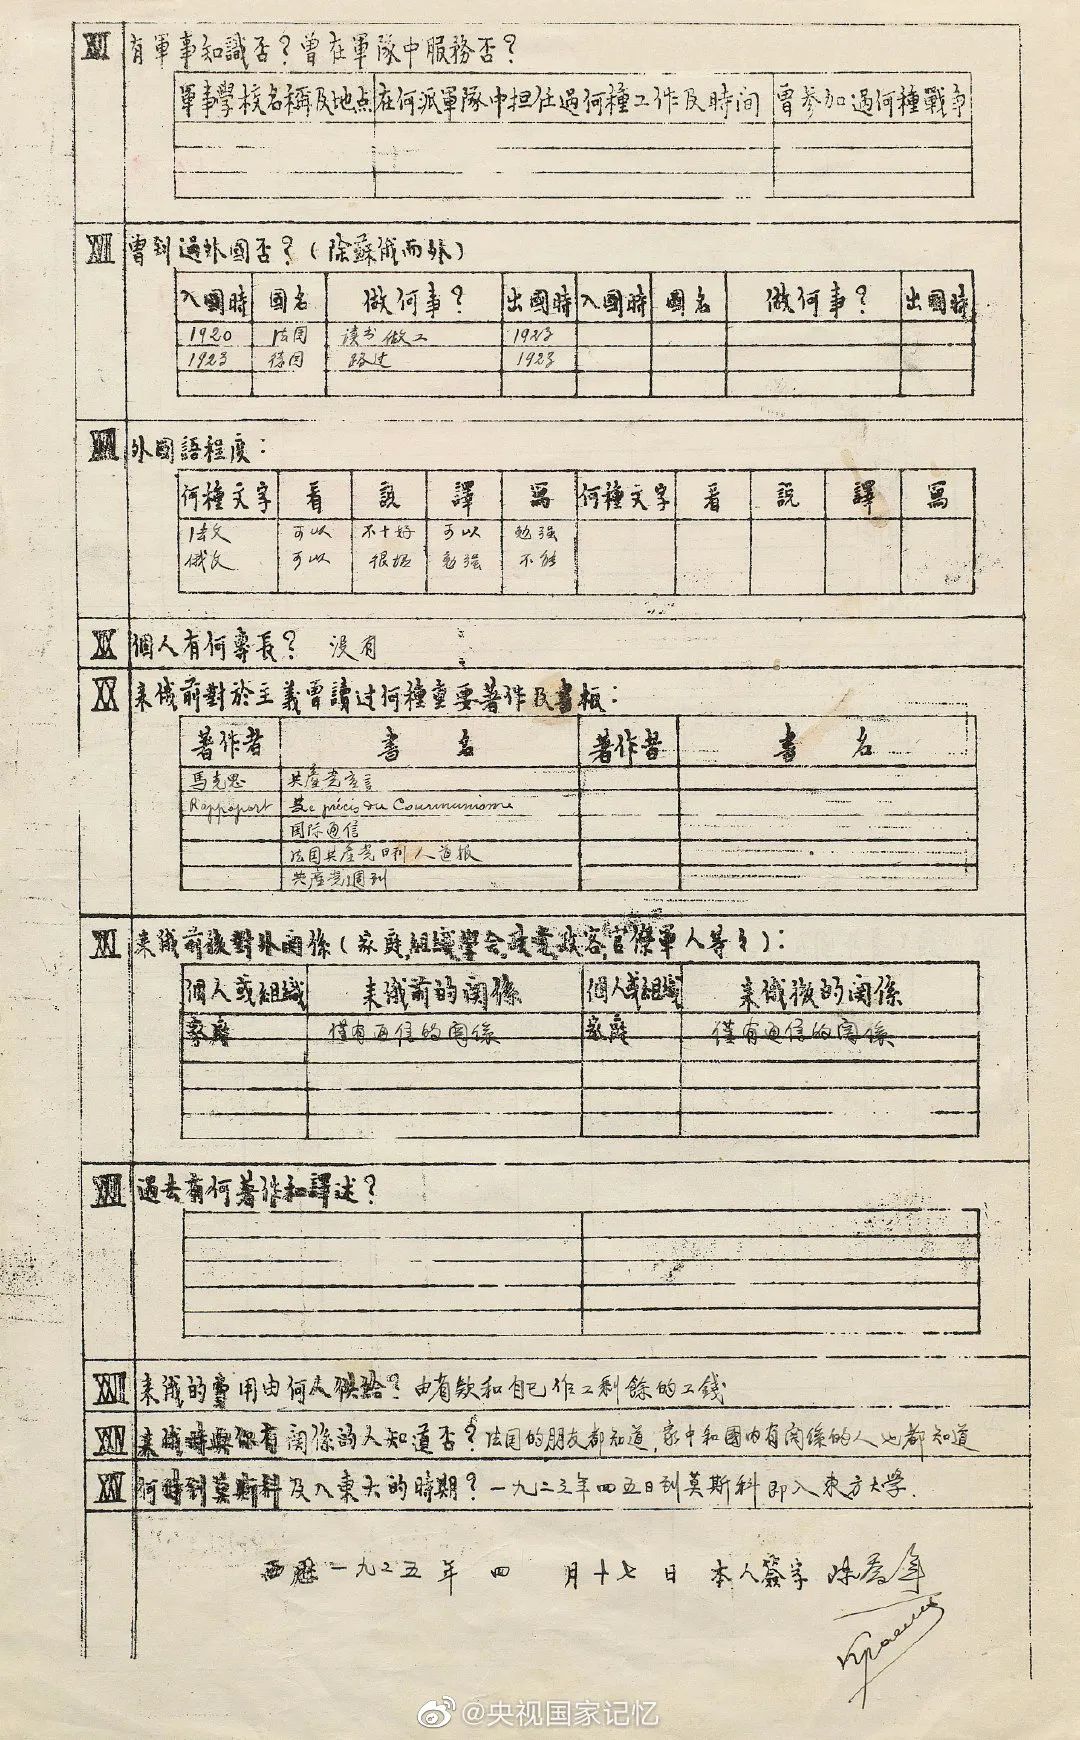 XVI 有軍事知識否？曾在軍隊中服務否？
軍事學校名稱及地点 在何派軍隊中担任過何種工作及時间 曾参加過何種戰争
XVII 曾到過外國否？（除蘇俄而外）
入國時 國名 做何事？ 出國時 入國時 國名 做何事？ 出國時
1920 法国 读书做工 1923
1923 德国 路过 1923
XVIII 外國語程度：
何種文字 看 説 譯 寫 何種文字 看 説 譯 寫
法文 可以 不十好 可以 勉强
俄文 可以 很坏 勉强 不能
XIX 個人有何專長？ 没有
XX 来俄前對於主義曾讀过何種重要著作及書報：
著作者 書名 著作者 書名
馬克思 共産党宣言
Rappoport précis du Communisme
国际通信
法国共産党日刊人道报
共産党週刊
XXI 来俄前後對外関係（家庭組織學会政党政客官僚軍人等々）：
個人或組織 来俄前的関係 個人或組織 来俄後的関係
家庭 僅有通信的関係 家庭 僅有通信的関係
XXII 過去有何著作和譯述？
XXIII 来俄的費用由何人供給？ 由有欵和自己作工剩餘的工錢
XXIV 来俄時與你有関係的人知道否？ 法国的朋友都知道，家中和國内有関係的人也都知道
XXV 何時到莫斯科及入東大的時期？ 一九二三年四五日到莫斯科即入東方大学.
西歷一九二五年四月十七日 本人簽字 陈乔年
@央视国家记忆